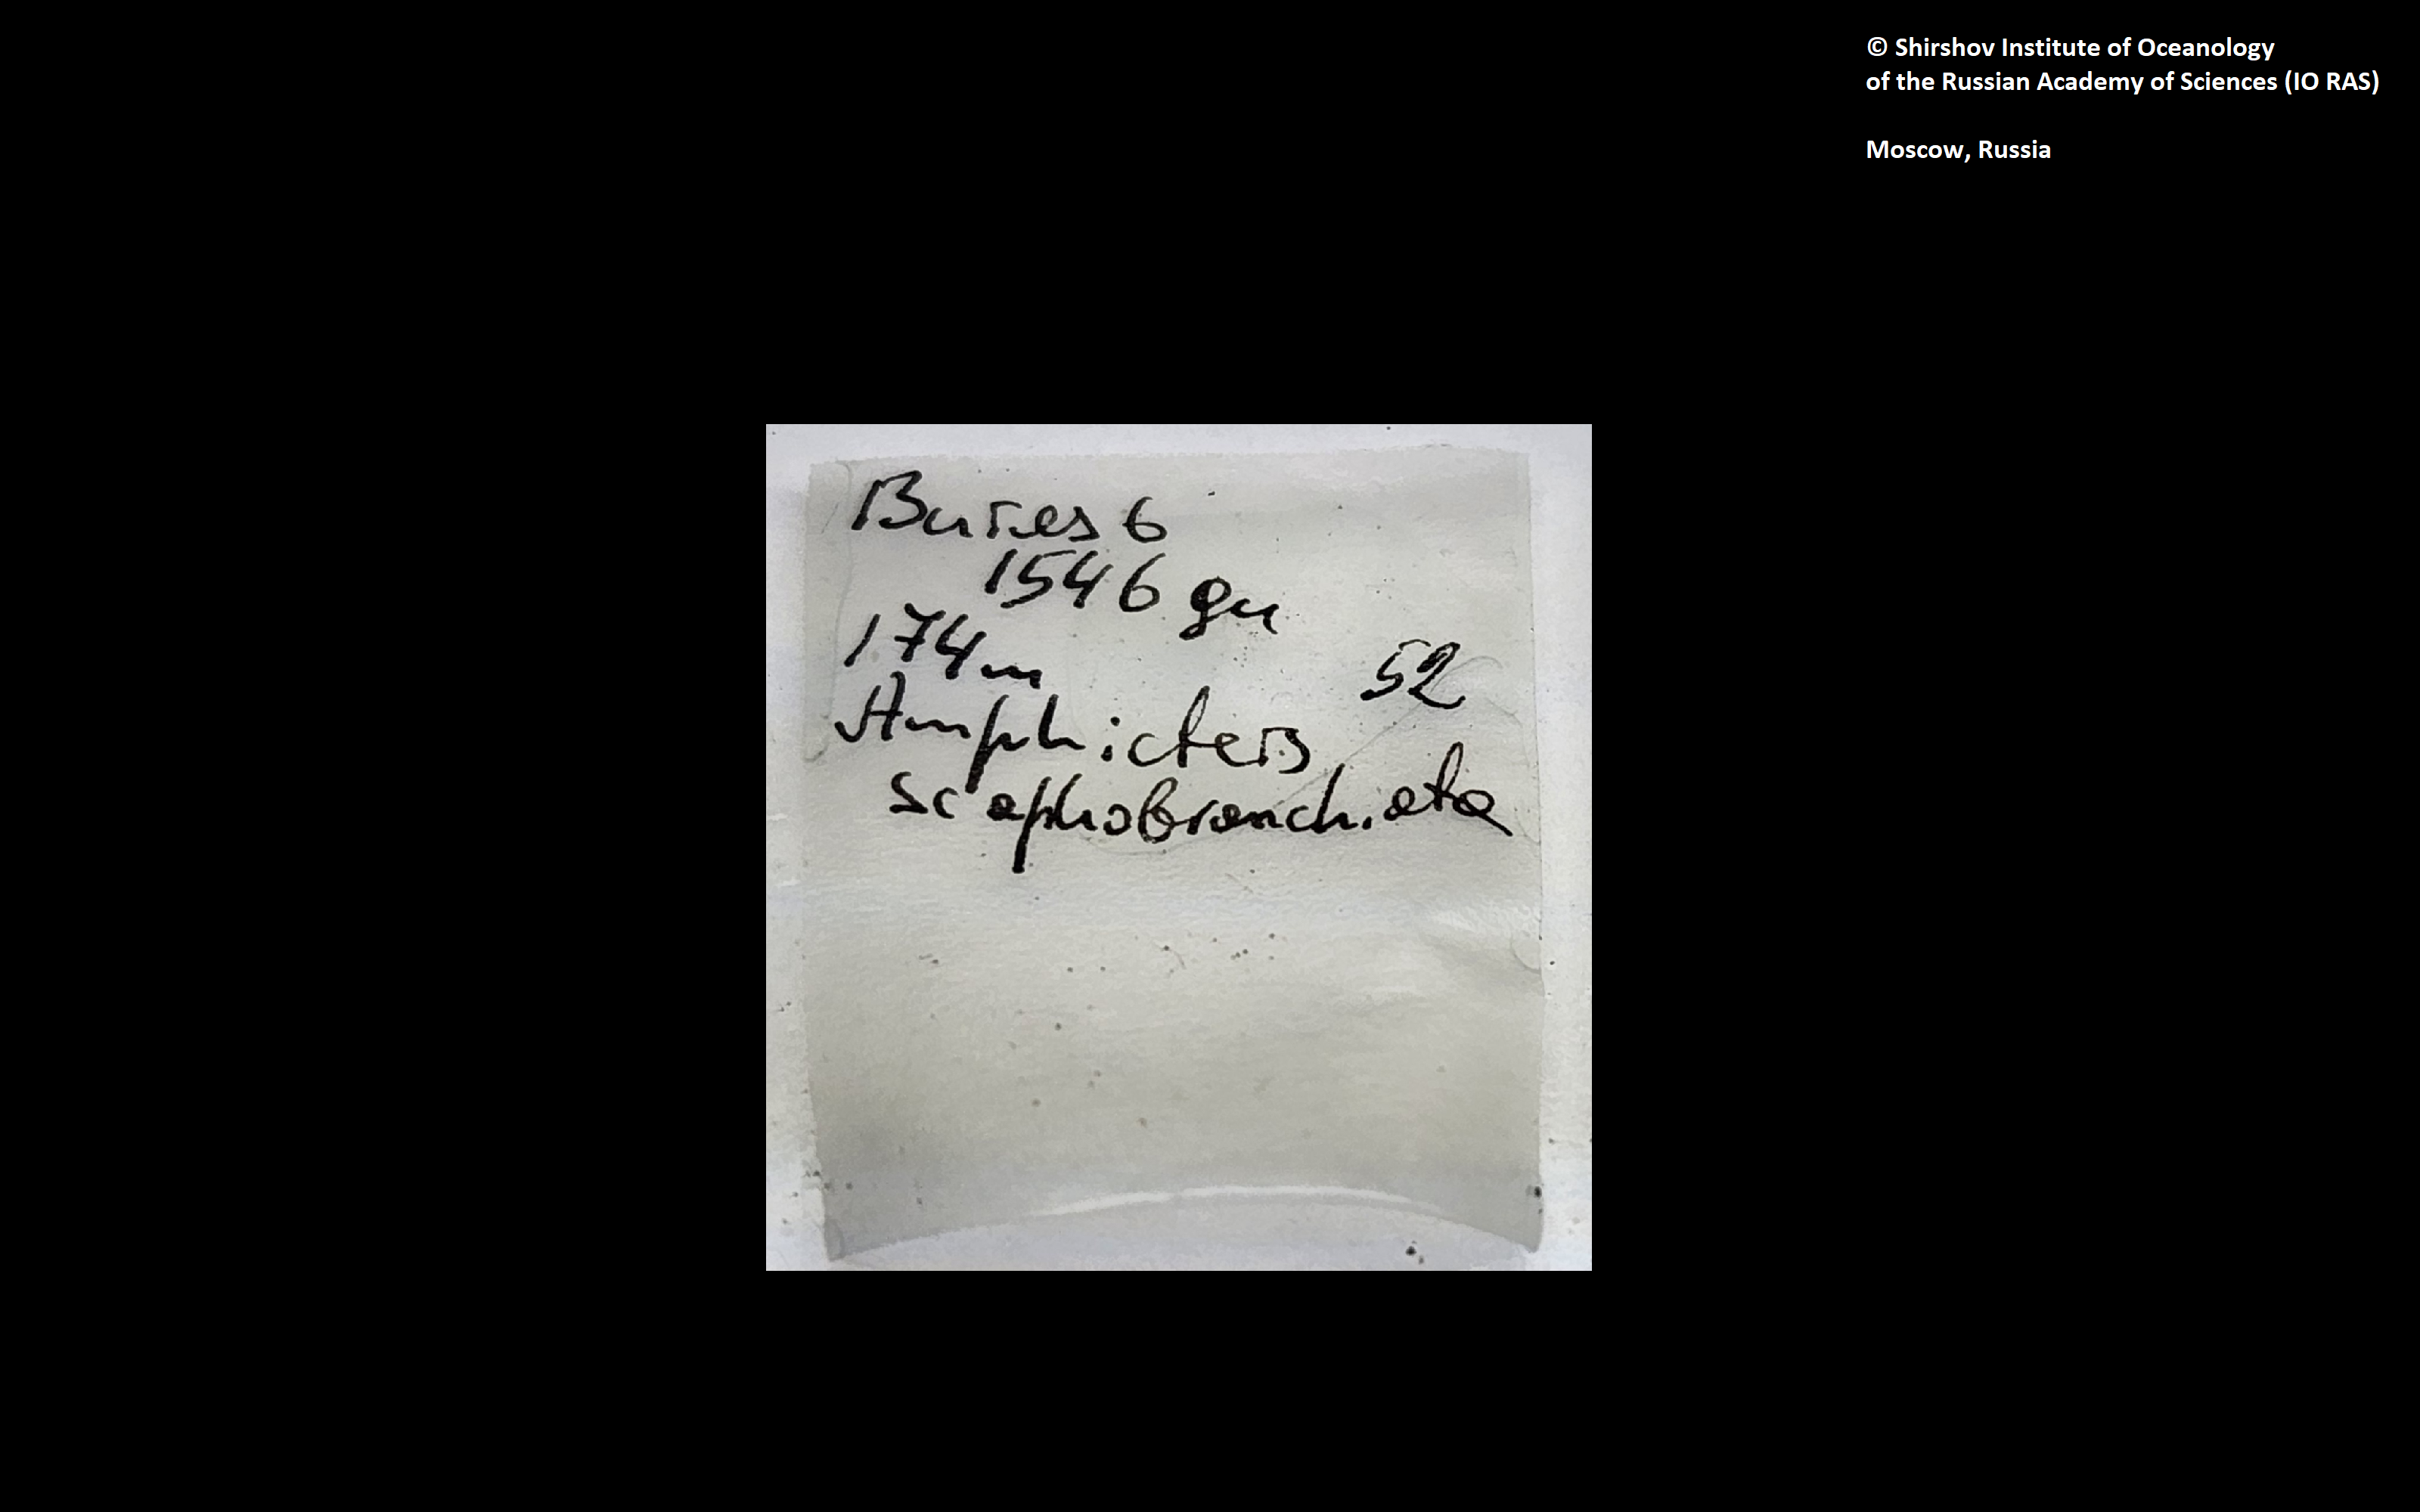 Витязь
1546
174 m
52
Amphicteis
scaphobranchiata
© Shirshov Institute of Oceanology
of the Russian Academy of Sciences (IO RAS)
Moscow, Russia